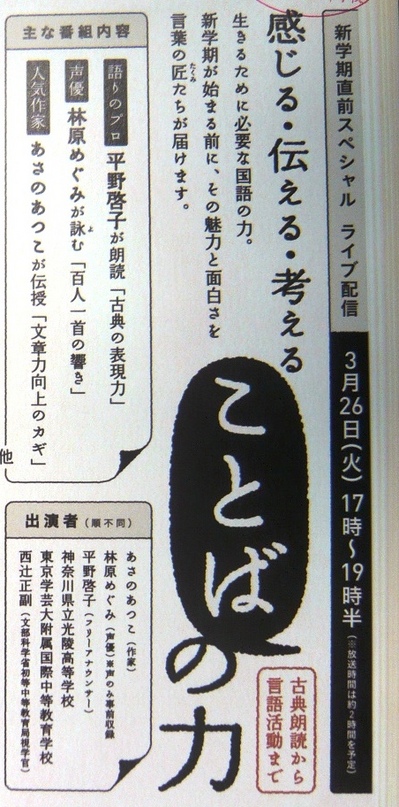 新学期直前スペシャル ライブ配信
3月26日(火) 17時〜19時半
(※放送時間は約2時間を予定)
感じる・伝える・考える
ことばの力
古典朗読から
言語活動まで
生きるために必要な国語の力。
新学期が始まる前に、その魅力と面白さを
言葉の匠たちが届けます。
たくみ
主な番組内容
語りのプロ 平野啓子が朗読「古典の表現力」
声優 林原めぐみが詠む「百人一首の響き」
よ
人気作家 あさのあつこが伝授「文章力向上のカギ」
他
出演者(順不同)
あさのあつこ(作家)
林原めぐみ(声優)※声のみ事前収録
平野啓子(フリーアナウンサー)
神奈川県立光陵高等学校
東京学芸大附属国際中等教育学校
西辻正副(文部科学省初等中等教育局視学官)